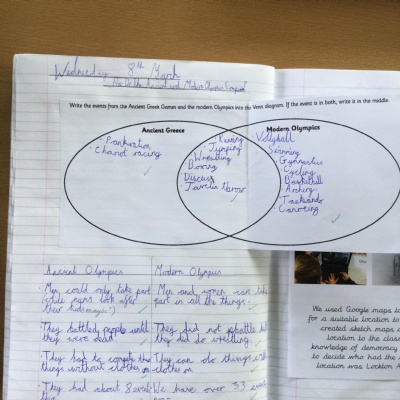 Wednesday 8th March
How Do the Ancient and Modern Olympics Compare?
Write the events from the Ancient Greek Games and the modern Olympics into the Venn diagram. If the event is in both, write it in the middle.
Ancient Greece
Modern Olympics
Pankration
Chariot racing
Running
Jumping
Wrestling
Boxing
Discus
Javelin throw
Volleyball
Swimming
Gymnastics
Cycling
Basketball
Arching
Taekwondo
Canoeing
Ancient Olympics
Modern Olympics
Men could only take part
(while mans look after
their kids
Men and women can take
part in all the things.
They battled people until
they were dead.
They did not battle but
they did do wrestling.
They had to compete
things without clothes on
They can do things with
clothes on
They had about 8 events
We have over 33
We used Google maps to
for a suitable location to
created sketch maps
location to the class
knowledge of democracy
to decide who had the
location was Lockton